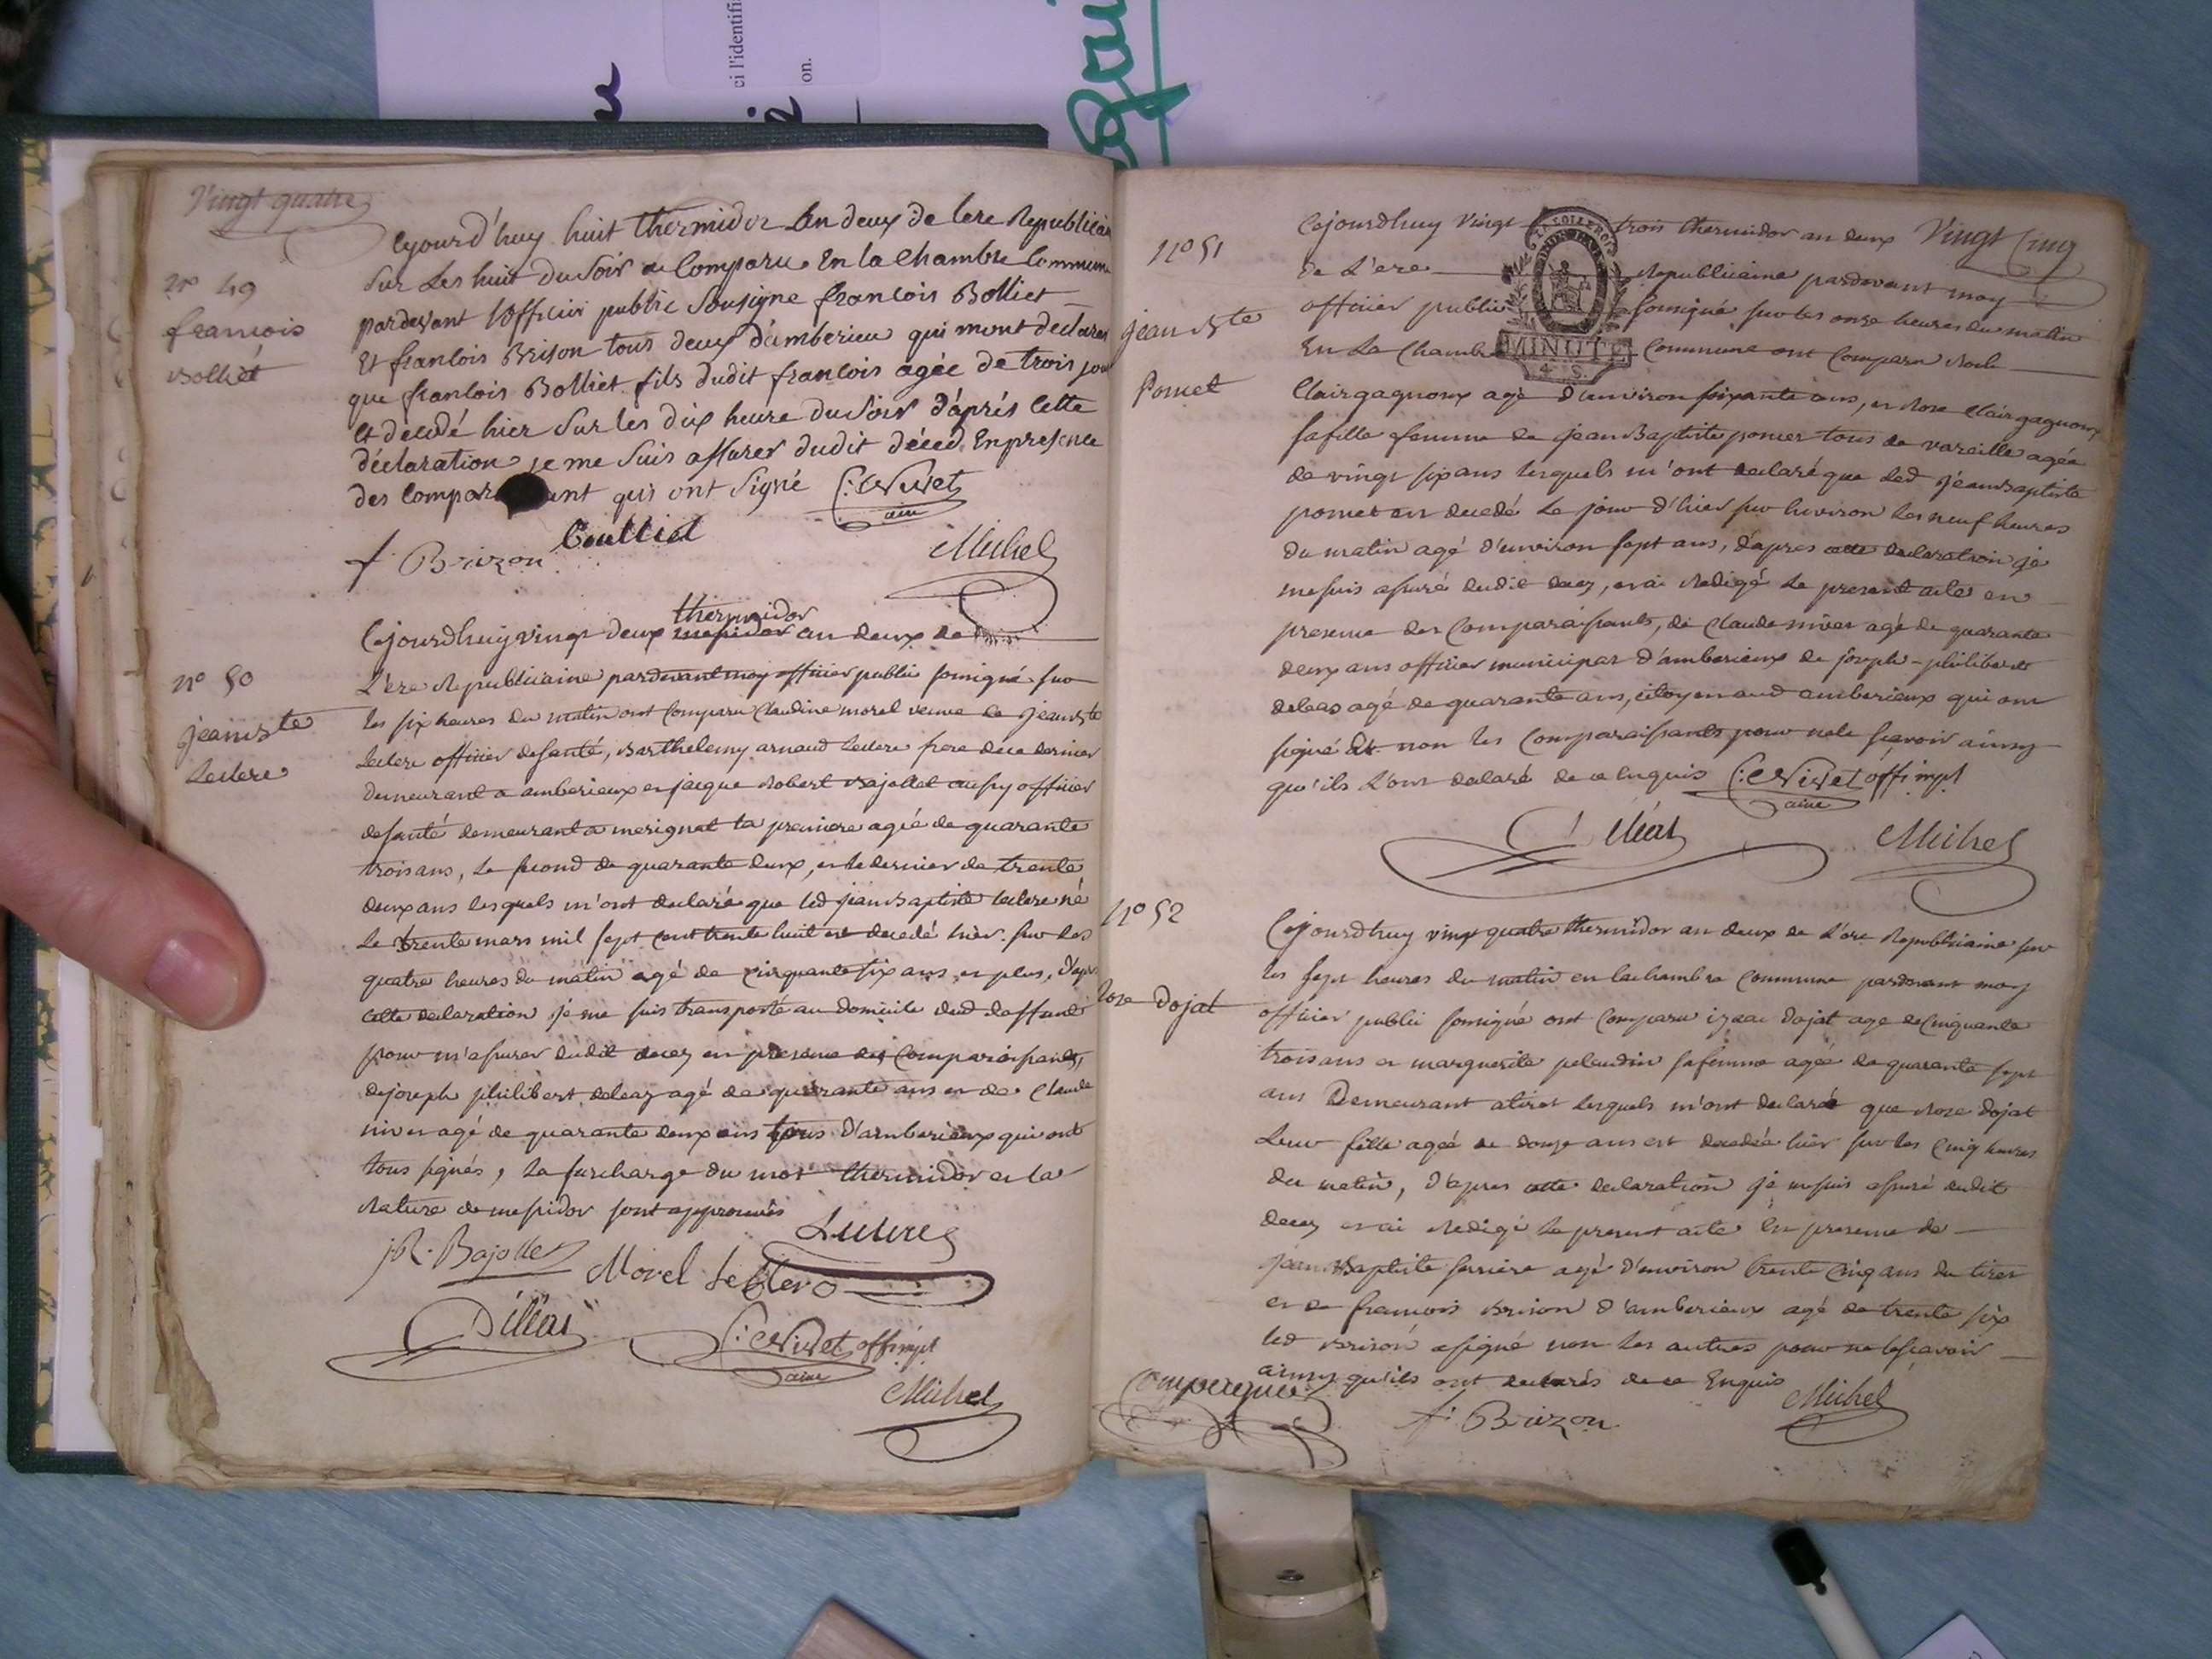 ci l'identifi
on.
Vingt quatre
Cejourd'huy huit thermidor an deux de lere Republicain
sur les huit du soir a Comparu En la Chambre Commune
pardevant l'officier public sousigné francois Bolliet
Et francois Brison tous deux d'amberieu qui mont declarer
que francois Bolliet fils dudit francois agée de trois jour
et décédé hier sur les dix heure du soir d'aprés cette
déclaration je me suis assurer dudit déced. En presence
des compar ant qui ont signé C: Nivet
ainé
n° 49
francois
Bolliet
Boulliet
f. Brizon
Michel
Cejourdhuy vingt deux thermidor messidor an deux de
L'ere Republicaine pardevant moy officier public sousigné sur
les six heures du matin ont comparu Claudine morel veuve de jean Bte
leclerc officier de santé, Barthelemy arnaud leclerc frere de ce dernier
demeurant a amberieux et jacque Robert Bajollet aussy officier
de santé demeurant a merignat la premiere agée de quarante
trois ans, le second de quarante deux, et le dernier de trente
deux ans lesquels m'ont declaré que led jean Baptiste leclerc né
le trente mars mil sept cent trente huit est decedé hier sur les
quatre heures du matin agé de cinquante six ans et plus, d'apr
cette declaration je me suis transporté au domicile dud deffunt
pour m'assurer dudit decez en presence des comparaissants,
de joseph philibert deleaz agé de quarante ans et de Claude
nivet agé de quarante deux ans tous d'amberieux qui ont
tous signés, la surcharge du mot thermidor et la
rature de messidor sont approuvés
n° 50
jean Bte
leclerc
Leclerc
j R. Bajollet
Morel Leclerc
Dilléas
C: Nivet off. mpl
ainé
Michel
Vingt Cinq
Cejourdhuy Vingt trois thermidor an deux
de L'ere Republicaine pardevant moy
officier public sousigné sur les onze heures du matin
En La Chambre Commune ont comparu
MINUTE
4 S.
Clairgagnoux agé d'environ soixante ans, et Rose Clairgagnoux
sa fille femme de jean Baptiste pomet tous de vareille agée
de vingt six ans lesquels m'ont declaré que led jean Baptiste
pomet est decedé le jour d'hier sur environ les neuf heures
du matin agé d'environ sept ans, d'apres cette declaration je
me suis assuré dudit decez, et ai redigé le present acte en
presence des comparaissants, de Claude nivet agé de quarante
deux ans officier municipal d'amberieux de joseph - philibert
deleaz agé de quarante ans, citoyen aud amberieux qui ont
signé et non les comparaissants pour ne le scavoir ainsy
qu'ils l'ont declaré de ce enquis C: Nivet off. mpl
ainé
n° 51
jean Bte
Pomet
Dilléas
Michel
Cejourdhuy vingt quatre thermidor an deux de L'ere Republicaine sur
les sept heures du matin en la chambre commune pardevant moy
officier public sousigné ont comparu izaac Dojat age de Cinquante
trois ans et marguerite pelaudin sa femme agée de quarante sept
ans Demeurant a tiret lesquels m'ont declaré que Rose Dojat
leur fille agée de douze ans est decedée hier sur les cinq heures
du matin, d'apres cette declaration je me suis assuré dudit
decez et ai redigé le present acte en presence de
jean Baptiste ferriere agé d'environ trente cinq ans du tiret
et de francois Brison d'amberieux agé de trente six
led Brison a signé non les autres pour ne le scavoir
ainsy qu'ils ont declarés de ce Enquis
n° 52
Rose Dojat
f. Brizon
Michel